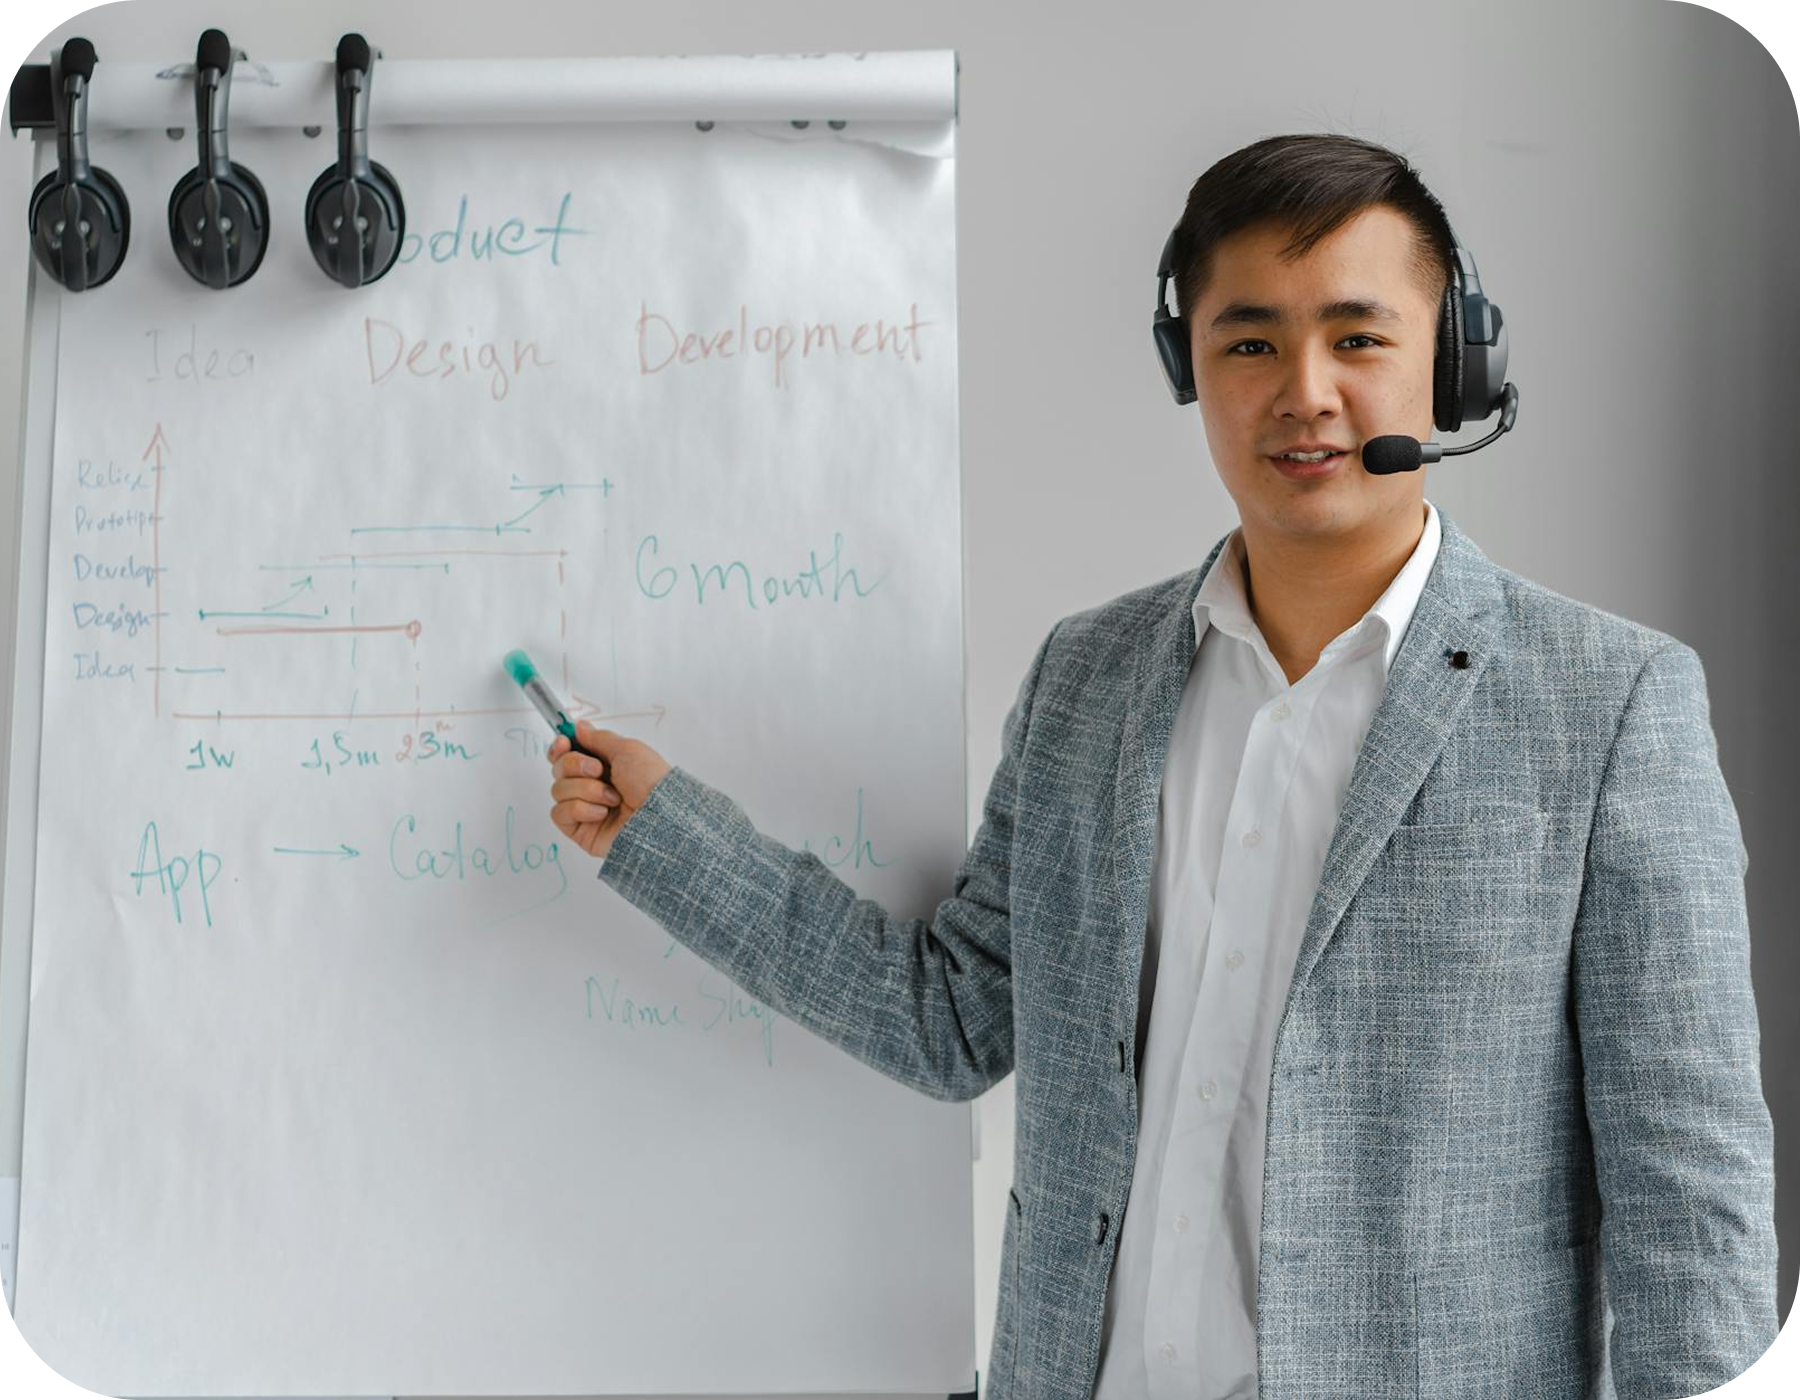 oduct
Idea Design Development
Relise
Prototipe
Develop
Design
Idea
6 month
1w 1,5m 2 3m Tim
App. → Catalog ch
Name Sh